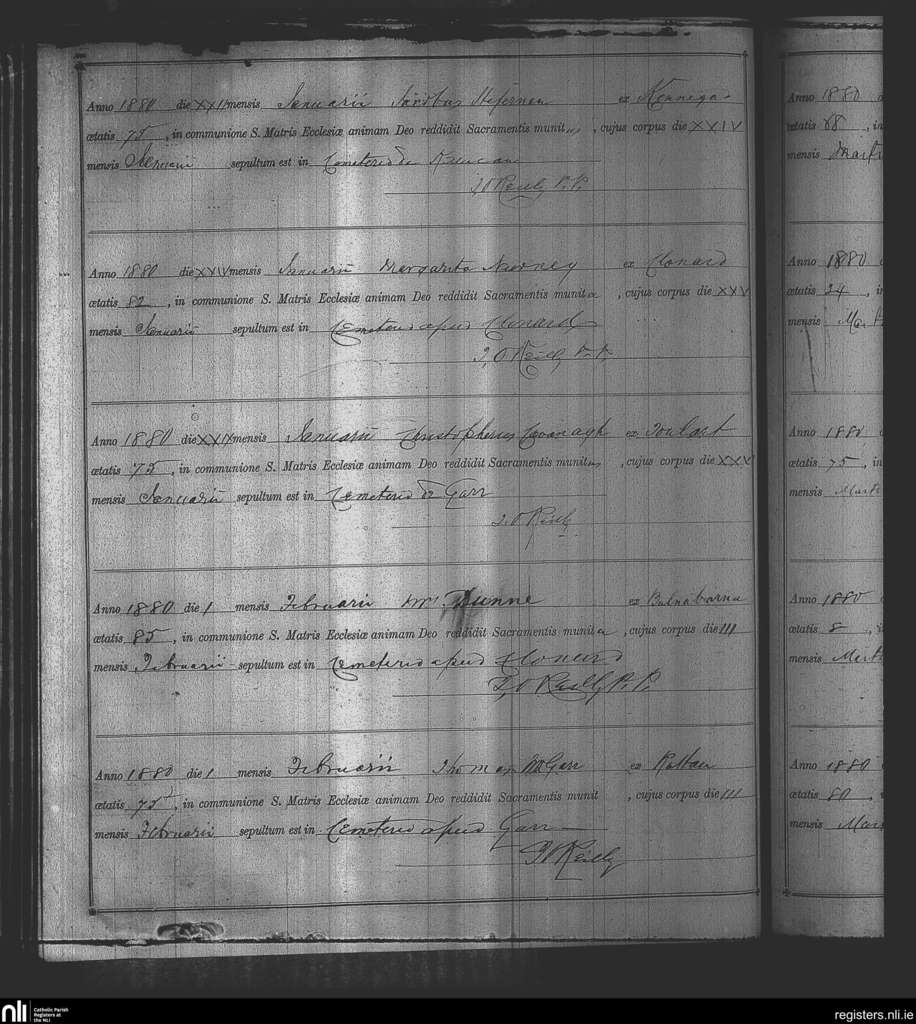 Anno 1880 die XXII mensis Januarii Jacobus Heffernan ex
ætatis 75, in communione S. Matris Ecclesiæ animam Deo reddidit Sacramentis munitus, cujus corpus die XXIV
mensis Januarii sepultum est in Cemeterio de
J, O Reilly P. P.
Anno 1880 die XXIV mensis Januarii Margarita ex Clonard
ætatis 82, in communione S. Matris Ecclesiæ animam Deo reddidit Sacramentis munita, cujus corpus die XXV
mensis Januarii sepultum est in Cemeterio apud Clonard
J, O Reilly P. P.
Anno 1880 die XXIX mensis Januarii Christopherus Cavanagh ex
ætatis 75, in communione S. Matris Ecclesiæ animam Deo reddidit Sacramentis munitus, cujus corpus die XXX
mensis Januarii sepultum est in Cemeterio de Garr
J. O Reilly
Anno 1880 die 1 mensis Februarii Mrs. Dunne ex
ætatis 85, in communione S. Matris Ecclesiæ animam Deo reddidit Sacramentis munita, cujus corpus die III
mensis Februarii sepultum est in Cemeterio apud Clonard
J, O Reilly P. P.
Anno 1880 die 1 mensis Februarii Thomas McGarr ex
ætatis 75, in communione S. Matris Ecclesiæ animam Deo reddidit Sacramentis munit , cujus corpus die III
mensis Februarii sepultum est in Cemeterio apud Garr
J O Reilly
Anno 1880
ætatis 68, in
mensis
Anno 1880
ætatis 24, in
mensis
Anno 1880
ætatis 75, in
mensis
Anno 1880
ætatis 8
mensis
Anno 1880
ætatis 80
mensis
nli
Catholic Parish
Registers at
the NLI
registers.nli.ie